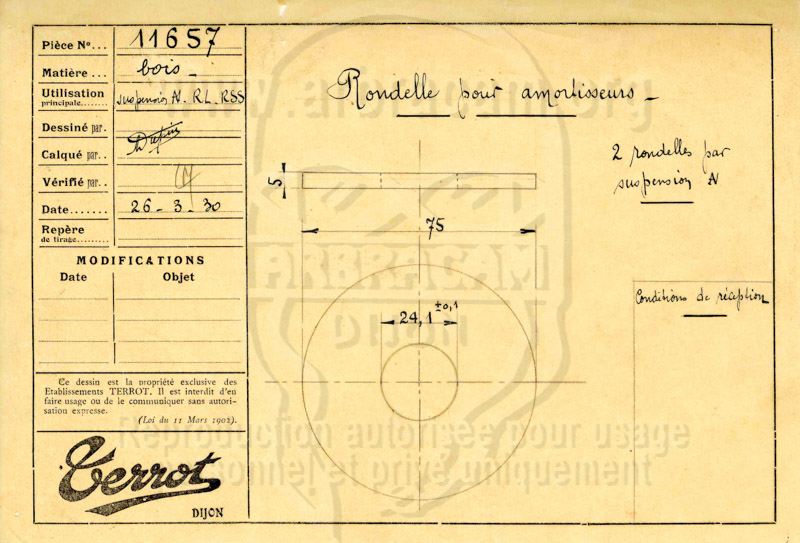 Pièce No... 11657
Matière ... bois_
Utilisation
principale........ suspension AV. RL. RSS
Dessiné par.
Calqué par..
Vérifié par..
Date....... 26 - 3 - 30
Repère
de tirage........
MODIFICATIONS
Date Objet
Ce dessin est la propriété exclusive des
Etablissements TERROT. Il est interdit d'en
faire usage ou de le communiquer sans autori-
sation expresse.
(Loi du 11 Mars 1902).
Terrot
DIJON
Rondelle pour amortisseurs_
2 rondelles par
suspension AV
5
75
24,1 ±0,1
Conditions de réception
ARBRACAM
DIJON
Reproduction autorisée pour usage
personnel et privé uniquement